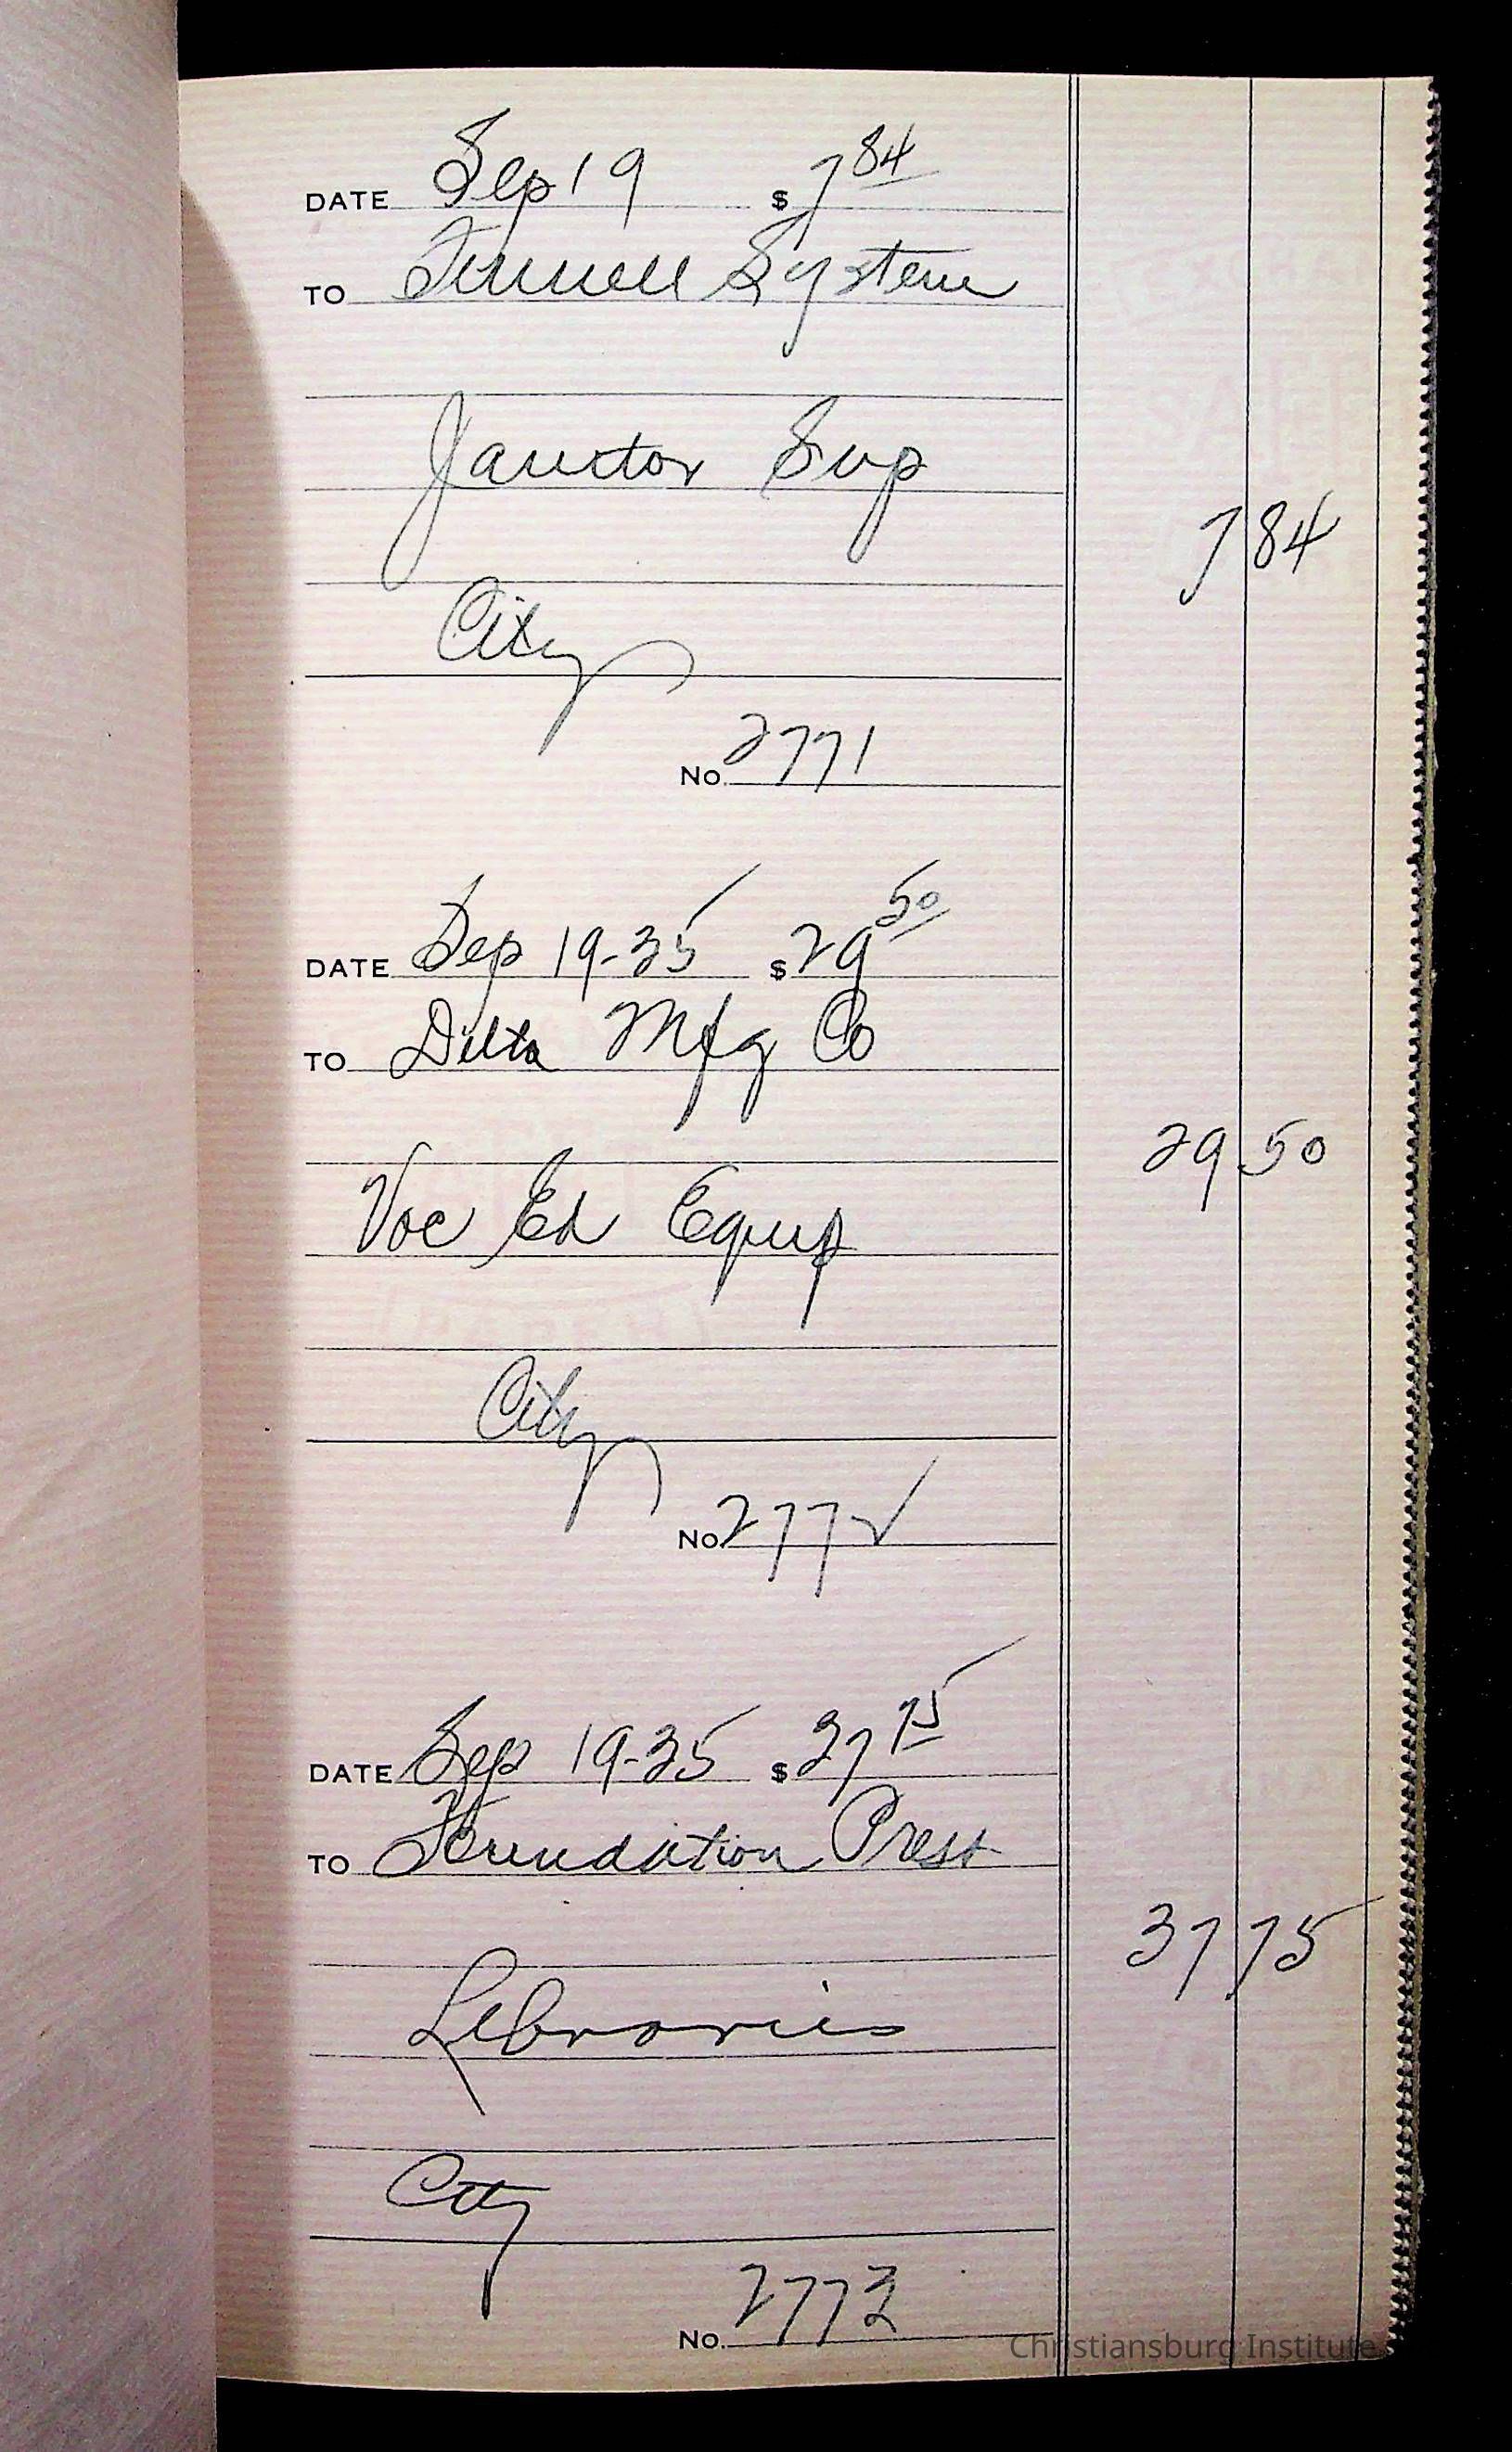 DATE Sep 19 $ 7 84
TO Fennell System
Janitor Sup
7 84
City
No. 2771
DATE Sep 19-35 $ 29 50
TO Delta Mfg Co
29 50
Voc Ed Equip
City
No. 2772
DATE Sep 19-35 $ 37 75
TO Foundation Press
37 75
Libraries
City
No. 2773
Christiansburg Institute